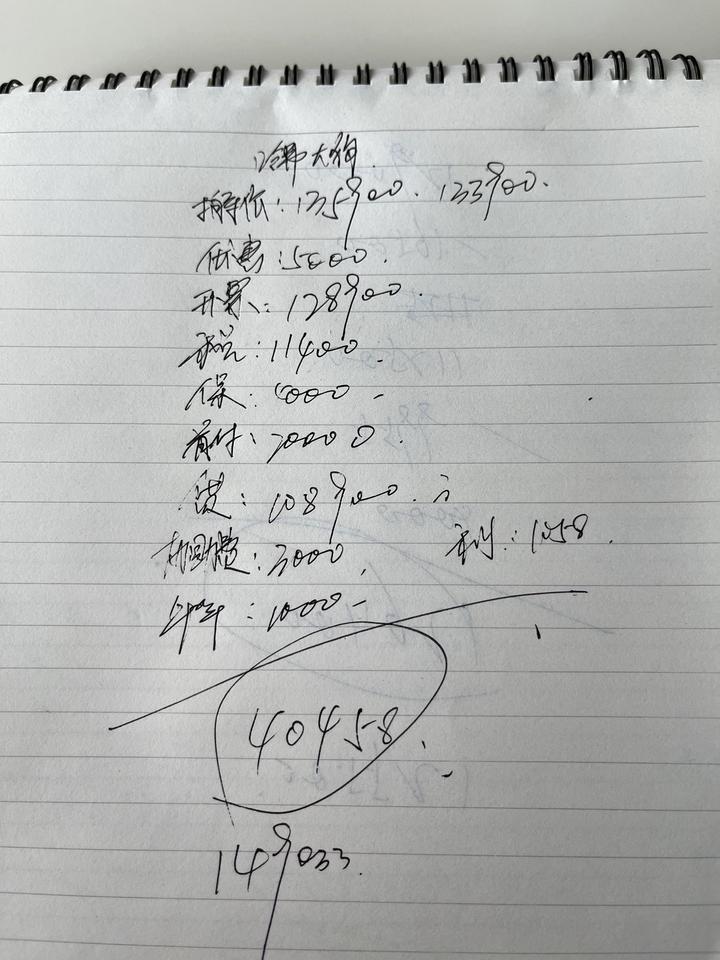 哈弗大狗.
指导价:135900. 133900.
优惠:5000.
开票:128900.
税:11400.
保:4000-
首付:20000.
贷:108900.
利:1058.
费:3000
1000-
40458.
149033.